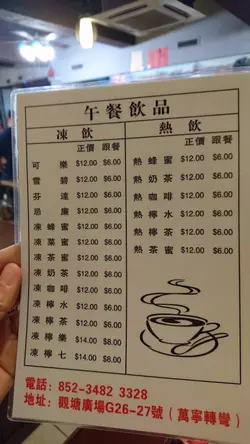 午餐飲品
凍飲 熱飲
正價 跟餐 正價 跟餐
可樂 $12.00 $6.00 熱蜂蜜 $12.00 $6.00
雪碧 $12.00 $6.00 熱奶茶 $12.00 $6.00
芬達 $12.00 $6.00 熱咖啡 $12.00 $6.00
忌廉 $12.00 $6.00 熱檸水 $12.00 $6.00
凍蜂蜜 $12.00 $6.00 熱檸茶 $12.00 $6.00
凍菜蜜 $12.00 $6.00 熱茶蜜 $12.00 $6.00
凍茶蜜 $12.00 $6.00
凍奶茶 $12.00 $6.00
凍咖啡 $12.00 $6.00
凍檸水 $12.00 $6.00
凍檸茶 $12.00 $6.00
凍檸樂 $14.00 $8.00
凍檸七 $14.00 $8.00
電話：852-3482 3328
地址：觀塘廣場G26-27號（萬寧轉彎）